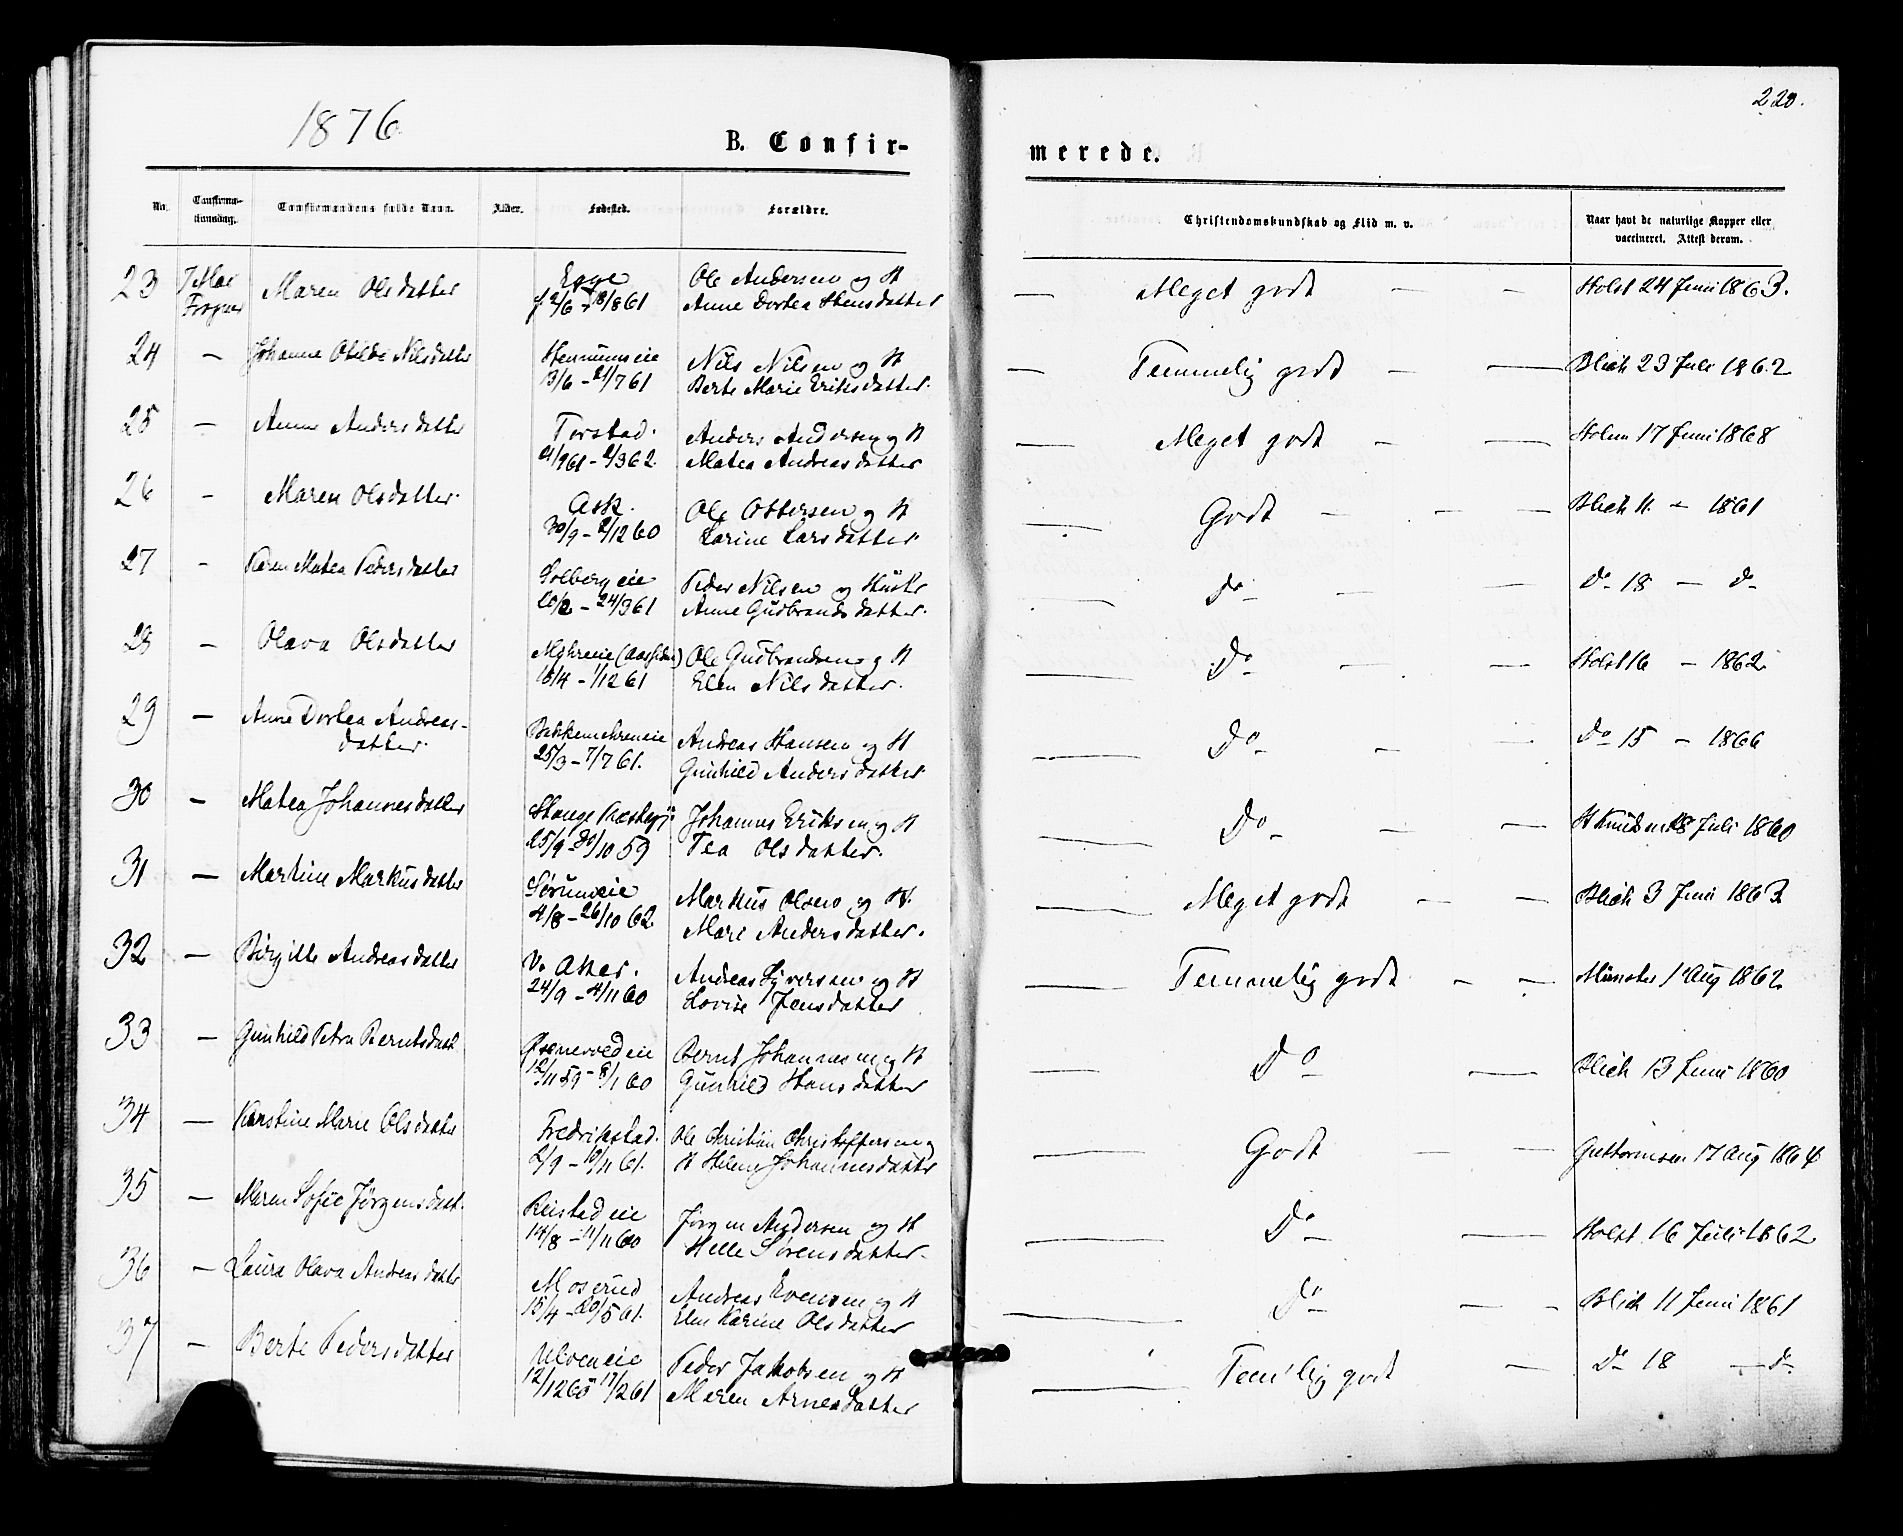 1876
220.
B. Confir-
merede.
No.
Confirma-
tionsdag.
Confirmandens fulde Navn.
Alder.
Fødested.
Forældre.
Christendomskundskab og Flid m. v.
Naar havt de naturlige Kopper eller
vaccineret. Attest derom.
23 7 Mai Maren Olsdatter Egge Ole Andersen og H — Meget godt — — Holst 24 Juni 1863.
Frogner Anne Dortea Hansdatter
24 — Johanne Otilde Nilsdatter Hennumeie Nils Nilsen og H — Temmelig godt — — Blich 23 Juli 1862
13/6 - 21/7 61 Berte Marie Eriksdatter.
25 — Anne Andersdatter Torstad. Anders Andersen og H — Meget godt — — Holm 17 Juni 1868
Matea Andreasdatter
26 — Maren Olsdatter. Ask. Ole Ottersen og H — Godt — — — Blich 11. — 1861
30/9 - 2/12 60 Karine Larsdatter
27 — Karen Matea Pedersdatter Solbergeie Peder Nilsen og Hustr — Do — — Do 18 — Do
10/2 - 24/3 61 Anne Gudbrandsdatter.
28 — Olava Olsdatter Ole Gudbrandsen og H — Do — — Holst 16 — 1862
18/4 - 1/12 61 Elen Nilsdatter.
29 — Anne Dortea Andreas- Andreas Hansen og H — Do — — Do 15 — 1866
datter. 25/3 - 7/7 61. Gunhild Andersdatter
30 — Matea Johannesdatter Stange Præstegj Johannes Eriksen og H — Do — — H Knudsen 18 Juli 1860
25/9 - 30/10 59 Tea Olsdatter.
31 — Martine Markusdatter Sørumeie Markus Olsen og H. — Meget godt — — Blich 3 Juni 1863
4/8 - 26/10 62 Mari Andersdatter.
32 — Birgitte Andreasdatter V. Aker. Andreas Syversen og H — Temmelig godt — — Münster 1 Aug 1862
24/9 - 4/11 60 Lovise Jensdatter
33 — Gunhild Petra Berntsdatt Bernt Johannesen og H — Do — Blich 13 Juni 1860
12/11 59 - 8/1 60 Gunhild Hansdatter
34 — Karstine Marie Olsdatter Fredrikstad. Ole Christian Christoffersen og — Godt — — Guttormsen 17 Aug 1864
2/9 - 10/11 61. H Helene Johannesdatter
35 — Maren Sofie Jørgensdatt. Reistadeie Jørgen Andersen og H — Do — Holst 16 Juli 1862
14/8 - 11/11 60 Helle Sørensdatter
36 — Laura Olava Andreasdatter Moserud Andreas Evensen og H — Do — — Blich 11 Juni 1861
15/4 - 20/5 61. Elen Karine Olsdatter
37 — Berte Pedersdatter Ulveneie Peder Jakobsen og H — Tem'lig godt — Do 18 — Do
12/12 60 - 17/2 61 Maren Arnesdatter